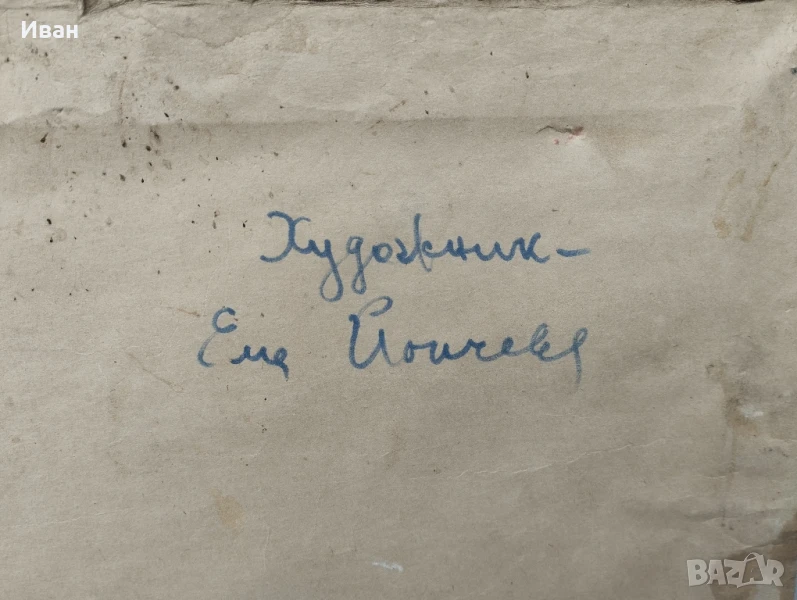 Иван
Художник -
Ема Йончева
BAZAR